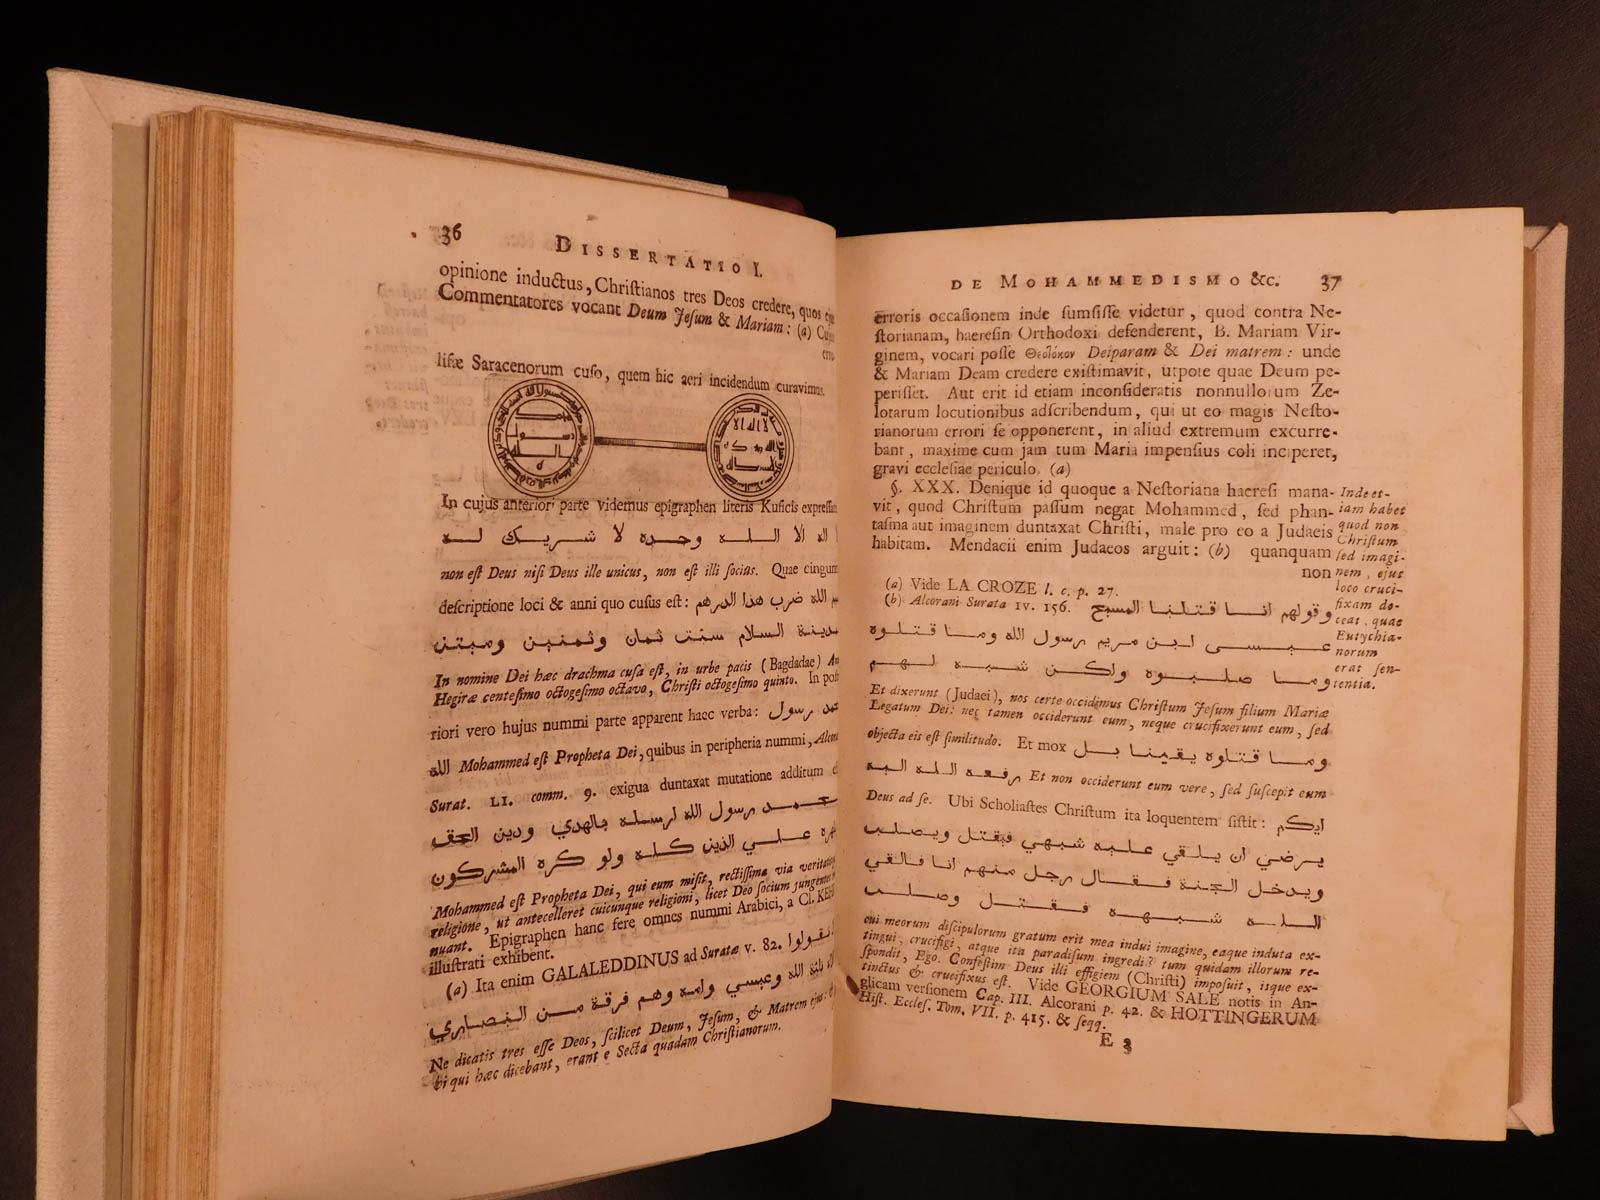 36
DISSERTATIO I.
opinione inductus, Christianos tres Deos credere, quos
Commentatores vocant Deum Jesum & Mariam: (a)
lifae Saracenorum cuso, quem hic aeri incidendum curavimus.
In cujus anteriori parte videmus epigraphen literis Kuficis
الله الا اللـه وحده لا شريك له
non est Deus nisi Deus ille unicus, non est illi socius. Quae
descriptione loci & anni quo cusus est: الله ضرب هذا الدرهم
السلام سنت ثمان وثمنين وميتن
In nomine Dei hæc drachma cusa est, in urbe pacis (Bagdadae)
Hegiræ centesimo octogesimo octavo, Christi octogesimo quinto. In
riori vero hujus nummi parte apparent haec verba: رسول
الله Mohammed est Propheta Dei, quibus in peripheria nummi,
Surat. LI. comm. 9. exigua duntaxat mutatione additum
رسول الله ارسله بالهدي ودين الحق
علي الدين كله ولو كره المشركون
Mohammed est Propheta Dei, qui eum misit, rectissima via
religione, ut antecelleret cuicunque religioni, licet Deo socium
nuant. Epigraphen hanc fere omnes nummi Arabici, a Cl.
illustrati exhibent.
(a) Ita enim GALALEDDINUS ad Suratæ v. 82.
الله وعيسي وامه وهم فرقة من النصاري
Ne dicatis tres esse Deos, scilicet Deum, Jesum, & Matrem ejus:
hi qui hæc dicebant, erant e Secta quadam Christianorum.
DE MOHAMMEDISMO &c. 37
erroris occasionem inde sumsisse videtur, quod contra Ne-
storianam, haeresin Orthodoxi defenderent, B. Mariam Vir-
ginem, vocari posse Θεοτόκον Deiparam & Dei matrem: unde
& Mariam Deam credere existimavit, utpote quae Deum pe-
perisset. Aut erit id etiam inconsideratis nonnullorum Ze-
lotarum locutionibus adscribendum, qui ut eo magis Nesto-
rianorum errori se opponerent, in aliud extremum excurre-
bant, maxime cum jam tum Maria impensius coli inciperet,
gravi ecclesiae periculo. (a)
§. XXX. Denique id quoque a Nestoriana haeresi mana-
vit, quod Christum passum negat Mohammed, sed phan-
tasma aut imaginem duntaxat Christi, male pro eo a Judaeis
habitam. Mendacii enim Judaeos arguit: (b) quanquam
non
Inde et-
iam habet
quod non
Christum
sed imagi-
nem, ejus
loco cruci-
fixam do-
ceat, quae
Eutychia-
norum
erat sen-
tentia.
(a) Vide LA CROZE l. c. p. 27.
(b) Alcorani Surata IV. 156. وقولهم انا قتلنا المسيح
عيسي ابن مريم رسول الله وما قتلوه
وما صلبوه ولكن شبه لهم
Et dixerunt (Judaei), nos certe occidimus Christum Jesum filium Mariæ
Legatum Dei: nec tamen occiderunt eum, neque crucifixerunt eum, sed
objecta eis est similitudo. Et mox وما قتلوه يقينا بل
رفعه الله اليه Et non occiderunt eum vere, sed suscepit eum
Deus ad se. Ubi Scholiastes Christum ita loquentem sistit: ايكم
يرضي ان يلقي عليه شبهي فيقتل ويصلب
ويدخل الجنة فقال رجل منهم انا فالقي
الله شبهه فقتل وصلب
cui meorum discipulorum gratum erit mea indui imagine, eaque induta ex-
tingui, crucifigi, atque ita paradisum ingredi? tum quidam illorum re-
spondit, Ego. Confestim Deus illi effigiem (Christi) imposuit, isque ex-
tinctus & crucifixus est. Vide GEORGIUM SALE notis in An-
glicam versionem Cap. III. Alcorani p. 42. & HOTTINGERUM
Hist. Eccles. Tom. VII. p. 415. & seqq.
E 3